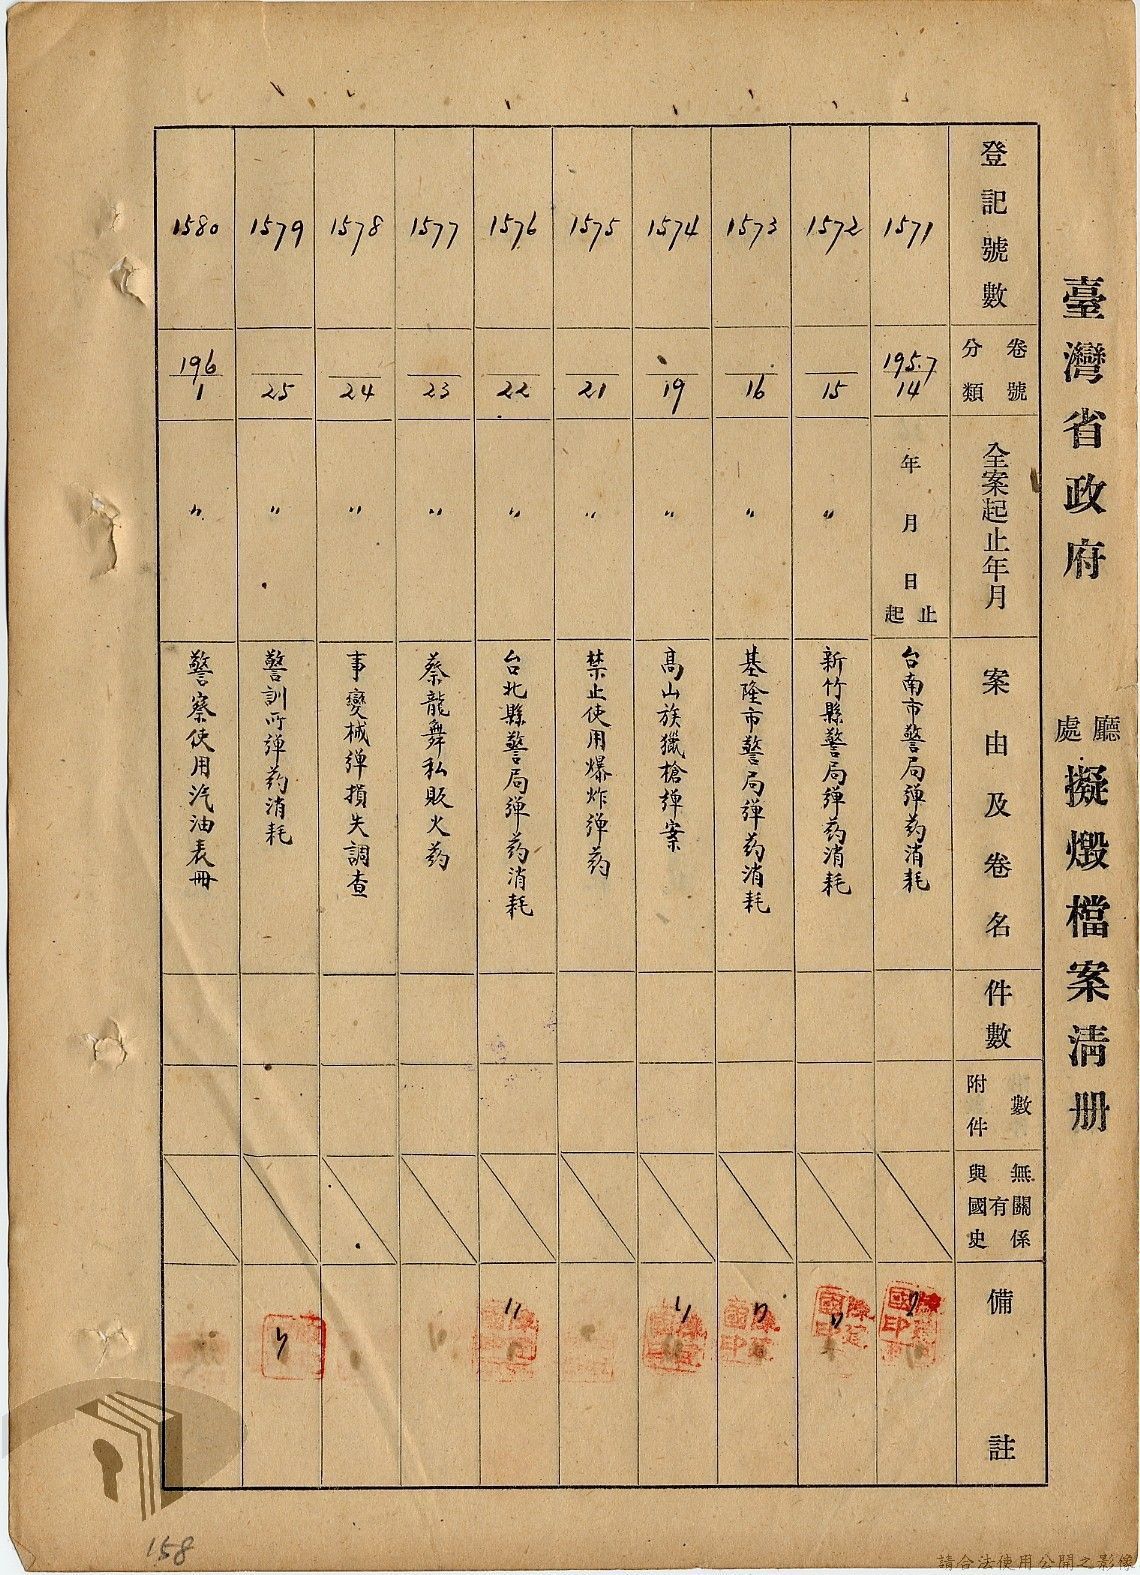 臺灣省政府 廳處 擬燬檔案清册
登記號數
卷號
分類
全案起止年月
案由及卷名
件數
附件
數
與國史
有
無關係
備註
1571
195.7
14
年月日
起
止
台南市警局弹药消耗
1572
15
〃
新竹縣警局弹药消耗
1573
16
〃
基隆市警局弹药消耗
1574
19
〃
高山族獵槍弹案
1575
21
〃
禁止使用爆炸弹药
1576
22
〃
台北縣警局弹药消耗
1577
23
〃
蔡龍舞私販火药
1578
24
〃
事變械弹損失調查
1579
25
〃
警訓所弹药消耗
1580
196
1
〃
警察使用汽油表冊
158
請合法使用公開之影像